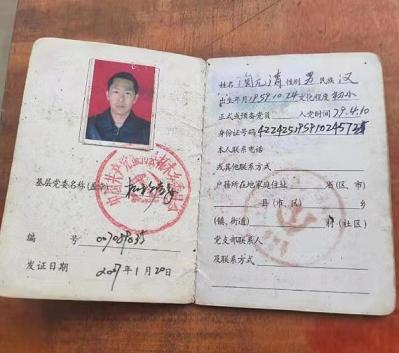 基层党委名称(盖章)
编 号 007059035
发证日期 2007年1月20日
姓名 陶元清 性别 男 民族 汉
出生年月 1959.10.24 文化程度 初小
正式或预备党员 入党时间 79.4.10
身份证号码
本人联系电话
或其他联系方式
户籍所在地家庭住址 省(区、市)
县(市、区) 乡
(镇、街道) 村(社区)
党支部联系人
及联系方式